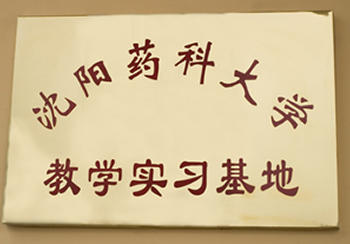 沈阳药科大学
教学实习基地